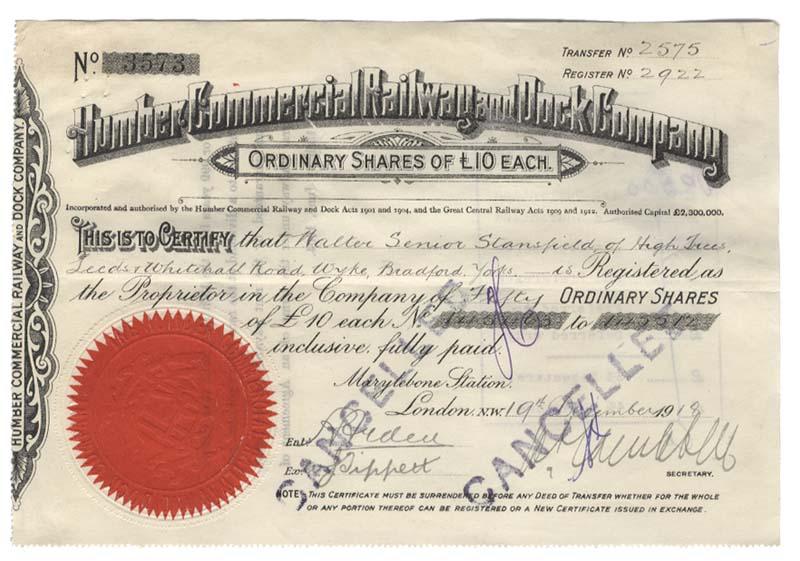 No. 3573
TRANSFER No 2575
REGISTER No 2922
Humber Commercial Railway and Dock Company
ORDINARY SHARES OF £10 EACH.
Incorporated and authorised by the Humber Commercial Railway and Dock Acts 1901 and 1904, and the Great Central Railway Acts 1909 and 1912. Authorised Capital £2,300,000.
THIS IS TO CERTIFY that Walter Senior Stansfield of High Trees,
Leeds & Whitehall Road, Wyke, Bradford, Yorks. is Registered as
the Proprietor in the Company of Fifty ORDINARY SHARES
of £10 each No to
inclusive, fully paid.
Marylebone Station.
London. N.W. 19th December 1918
Entd
Exd Tippett
SECRETARY.
NOTE: THIS CERTIFICATE MUST BE SURRENDERED BEFORE ANY DEED OF TRANSFER WHETHER FOR THE WHOLE
OR ANY PORTION THEREOF CAN BE REGISTERED OR A NEW CERTIFICATE ISSUED IN EXCHANGE.
CANCELLED
CANCELLED
HUMBER COMMERCIAL RAILWAY AND DOCK COMPANY.